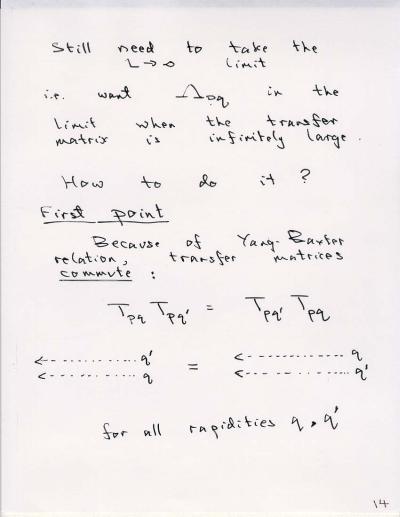 Still need to take the
L → ∞ limit
i.e. want Λpq in the
limit when the transfer
matrix is infinitely large.
How to do it?
First point
Because of Yang-Baxter
relation, transfer matrices
commute :
Tpq Tpq' = Tpq' Tpq
← - - - - - - - - - q' = ← - - - - - - - - - q
← - - - - - - - - - q ← - - - - - - - - - q'
for all rapidities q, q'
14